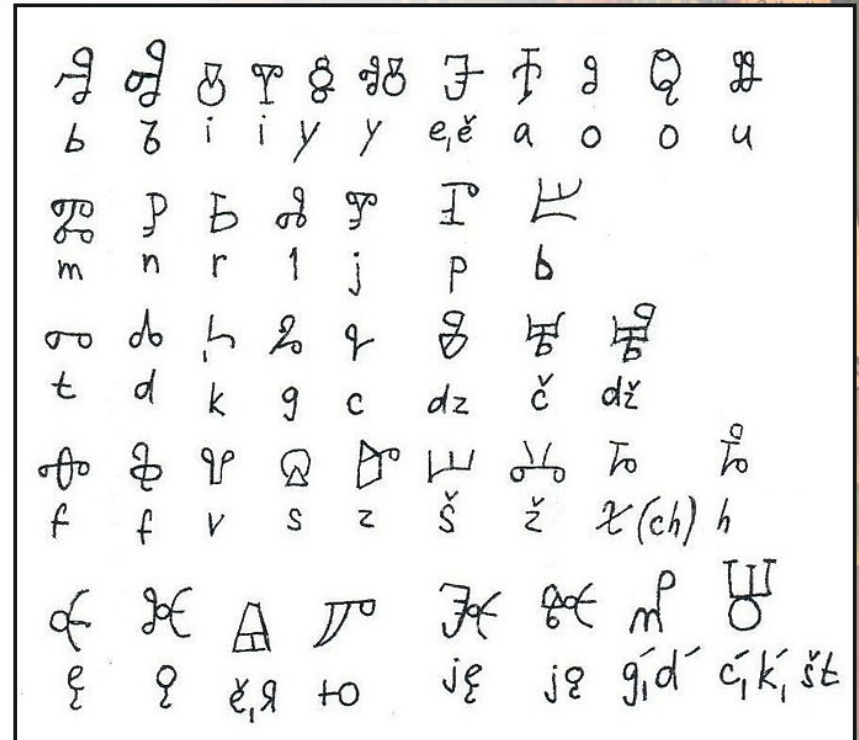 ⱐ ⱏ ⰻ ⰺ ⱛ ⱏⰻ ⰵ ⰰ ⱁ ⱉ ⱆ
ь ъ i i y y e,ě a o o u
ⰿ ⱀ ⱃ ⰾ ⰹ ⱂ ⰱ
m n r l j p b
ⱅ ⰴ ⰽ ⰳ ⱌ ⰷ ⱍ
t d k g c dz č dž
ⱇ ⱚ ⰲ ⱄ ⰸ ⱎ ⰶ ⱈ
f f v s z š ž χ(ch) h
ⱔ ⱘ ⱑ ⱓ ⱗ ⱙ ⰼ ⱋ
ę ǫ ě,я ю ję jǫ ǵ,d́ ć,ḱ,št